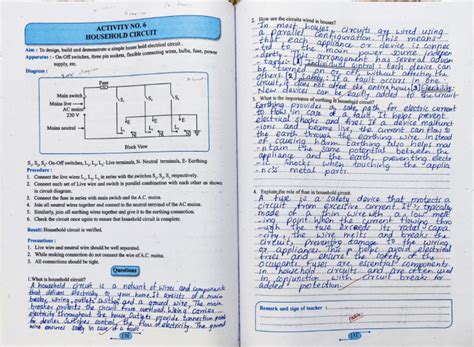 ACTIVITY NO. 6
HOUSEHOLD CIRCUIT
Aim : To design, build and demonstrate a simple house hold electrical circuit.
Apparatus :- On-Off switches, three pin sockets, flexible connecting wires, bulbs, fuse, power
supply, etc.
Diagram :
Fuse
Main switch
Mains line
AC mains
230 V
Mains neutral
S₁
S₂
S₃
L₁
L₂
L₃
E
N
Block View
S₁, S₂, S₃ On-Off switches, L₁, L₂, L₃- Live terminals, N- Neutral terminals, E- Earthing
Procedure :
1. Connect the live wires L₁, L₂, L₃ in series with the switches S₁, S₂, S₃ respectively.
2. Connect each set of Live wire and switch in parallel combination with each other as shown
in circuit diagram.
3. Connect the fuse in series with main switch and the A.C. mains.
4. Join all neutral wires together and connect to the neutral terminal of the AC mains.
5. Similarly, join all earthing wires together and give it to the earthing connection.
6. Check the circuit once again to ensure that household circuit is complete.
Result: Household circuit is verified.
Precautions :
1. Live wire and neutral wire should be well separated.
2. While making connection do not connect the wire of A.C. mains.
3. All connections should be right.
Questions
1.What is household circuit?
A household circuit is a network of wires and components
that delivers electricity to your home. It consists of a main
breaker, wiring, outlets, switches and a ground wire. The main
breaker protects the circuit from overload. Wiring carries
electricity throughout the house. Outlets provide connection point
for devices. Switches control the flow of electricity. The ground
wire ensures safety in case of a fault.
2. How are the circuits wired in house?
In most houses, circuits are wired using
a parallel configuration. This means
that each appliance or device is connec
-ted to the main power source indepen
-dently. This arrangement has several advan
-tages: [1] Individual control: Each device can
be turned on or off, without affecting the
others. [2] Safety: If a fault occurs in one
circuit, it does not affect the entire house. [3] Flexibility:
New devices can be easily added to the circuit.
3. What is the importance of earthing in household circuit?
Earthing provides a safe path for electric current
to flow in case of a fault. It helps prevent
electrical shocks and fires. If a device malfunct
-ions and become live, the current can flow to
the earth through the earthing wire, instead
of causing harm. Earthing also helps mai
-ntain the same potential between the
appliance and the earth, preventing electr
-ic shocks when touching the applia
-nce's metal parts.
4. Explain the role of fuse in household circuit.
A fuse is a safety device that protects a
circuit from excessive current. It's typically
made of a thin wire with a low melt
-ing point. When the current flowing thro
-ugh the fuse exceeds its rated capa
-city, the wire melts and breaks the
circuit, preventing damage to the wiring
or appliances. This helps avoid electrical
fires and ensure the safety of the
occupants. Fuses are essential components
in household circuits and are often used
in conjunction with circuit breaker for
added protection.
Remark and sign of teacher :